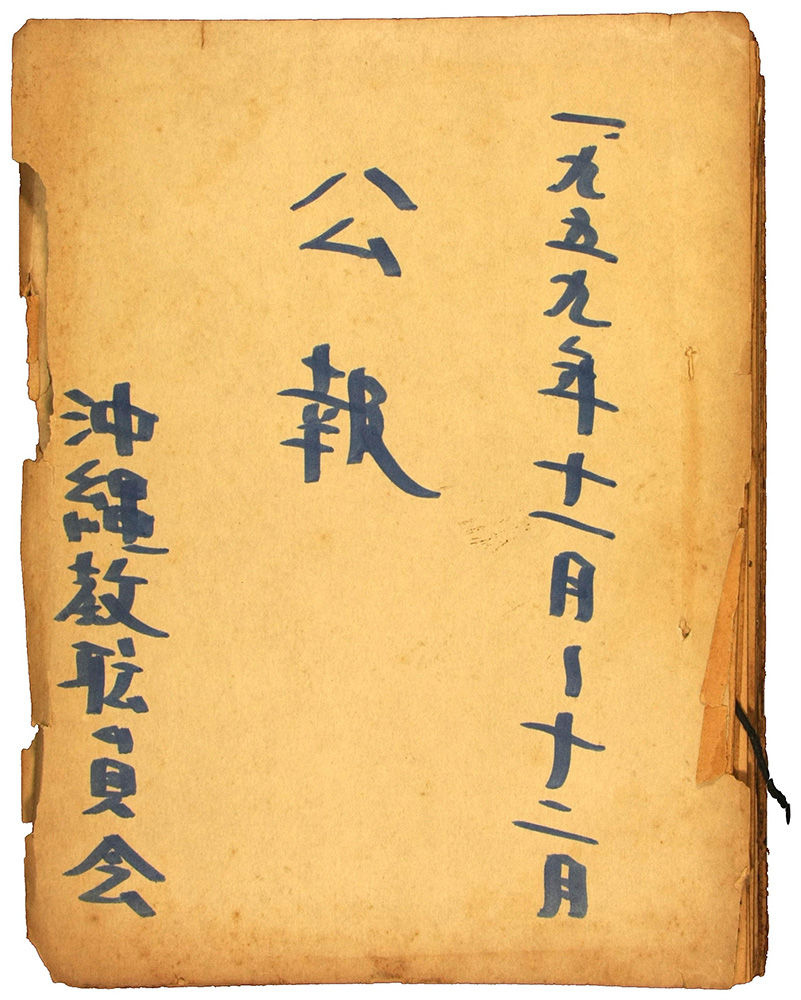 一九五九年十一月〜十二月
公報
沖縄教職員会